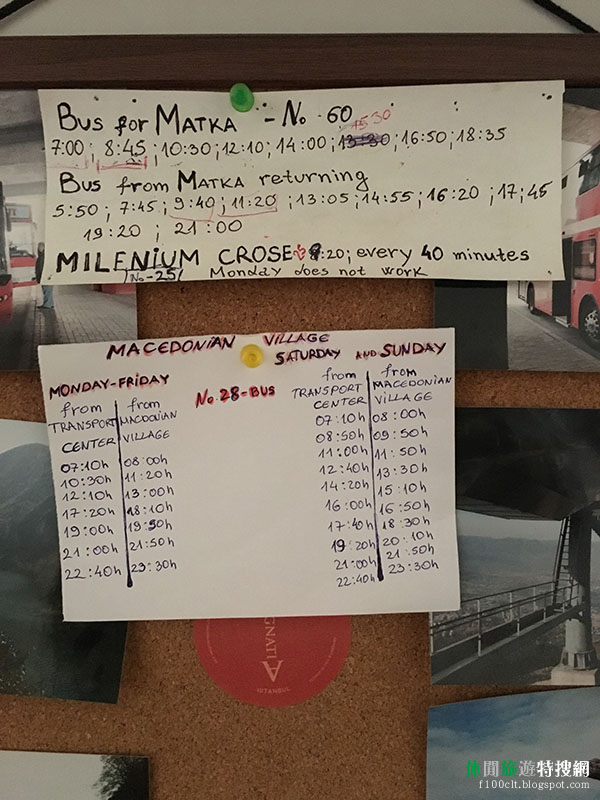 Bus for MATKA - No 60
15 30
7:00; 8:45; 10:30; 12:10; 14:00; 13:30; 16:50; 18:35
Bus from MATKA returning
5:50; 7:45; 9:40; 11:20; 13:05; 14:55; 16:20; 17;45
19:20; 21:00
MILENIUM CROSE 8:20; every 40 minutes
No-25/ Monday does not work
MACEDONIAN VILLAGE
SATURDAY AND SUNDAY
MONDAY-FRIDAY
No 28-BUS
from TRANSPORT CENTER
from MACDONIAN VILLAGE
07:10h 08:00h
10:30h 11:20h
12:10h 13:00h
17:20h 18:10h
19:00h 19:50h
21:00h 21:50h
22:40h 23:30h
from TRANSPORT CENTER
from MACEDONIAN VILLAGE
07:10h 08:00h
08:50h 09:50h
11:00h 11:50h
12:40h 13:30h
14:20h 15:10h
16:00h 16:50h
17:40h 18:30h
19:20h 20:10h
21:00h 21:50h
22:40h 23:30h
GNATI
A
ISTANBUL
休閒旅遊特搜網
f100clt.blogspot.com